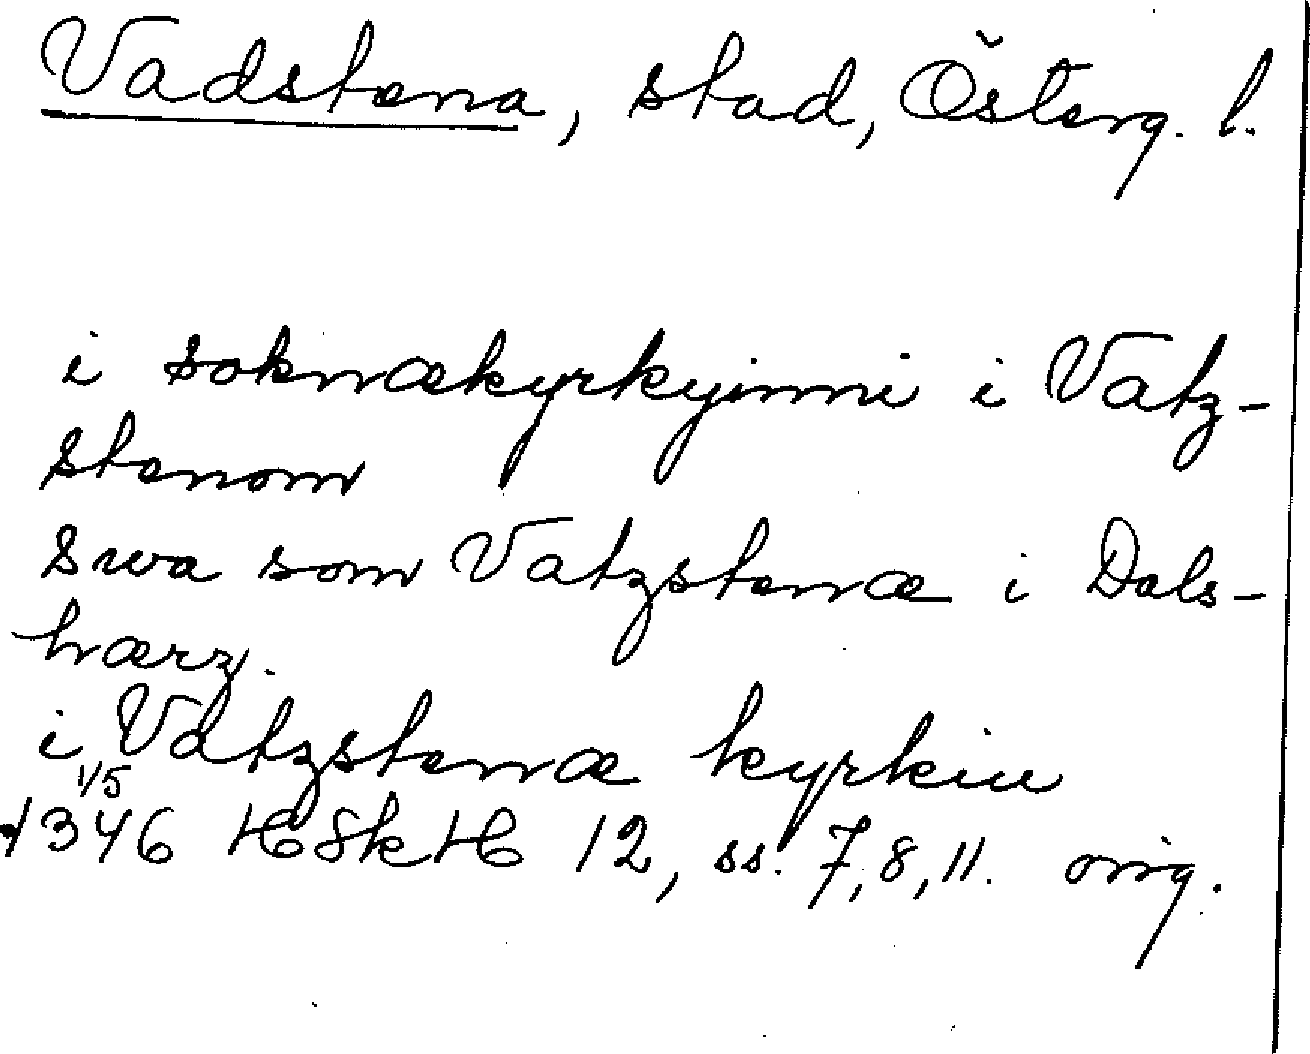 Vadstena, stad, Österg. l.
i soknækyrkyinni i Vatz-
stenom
swa som Vatzstenæ i Dals-
hærz.
i Vatzstenæ kyrkiu
1/5
1346 HSkH 12, ss. 7, 8, 11. orig.